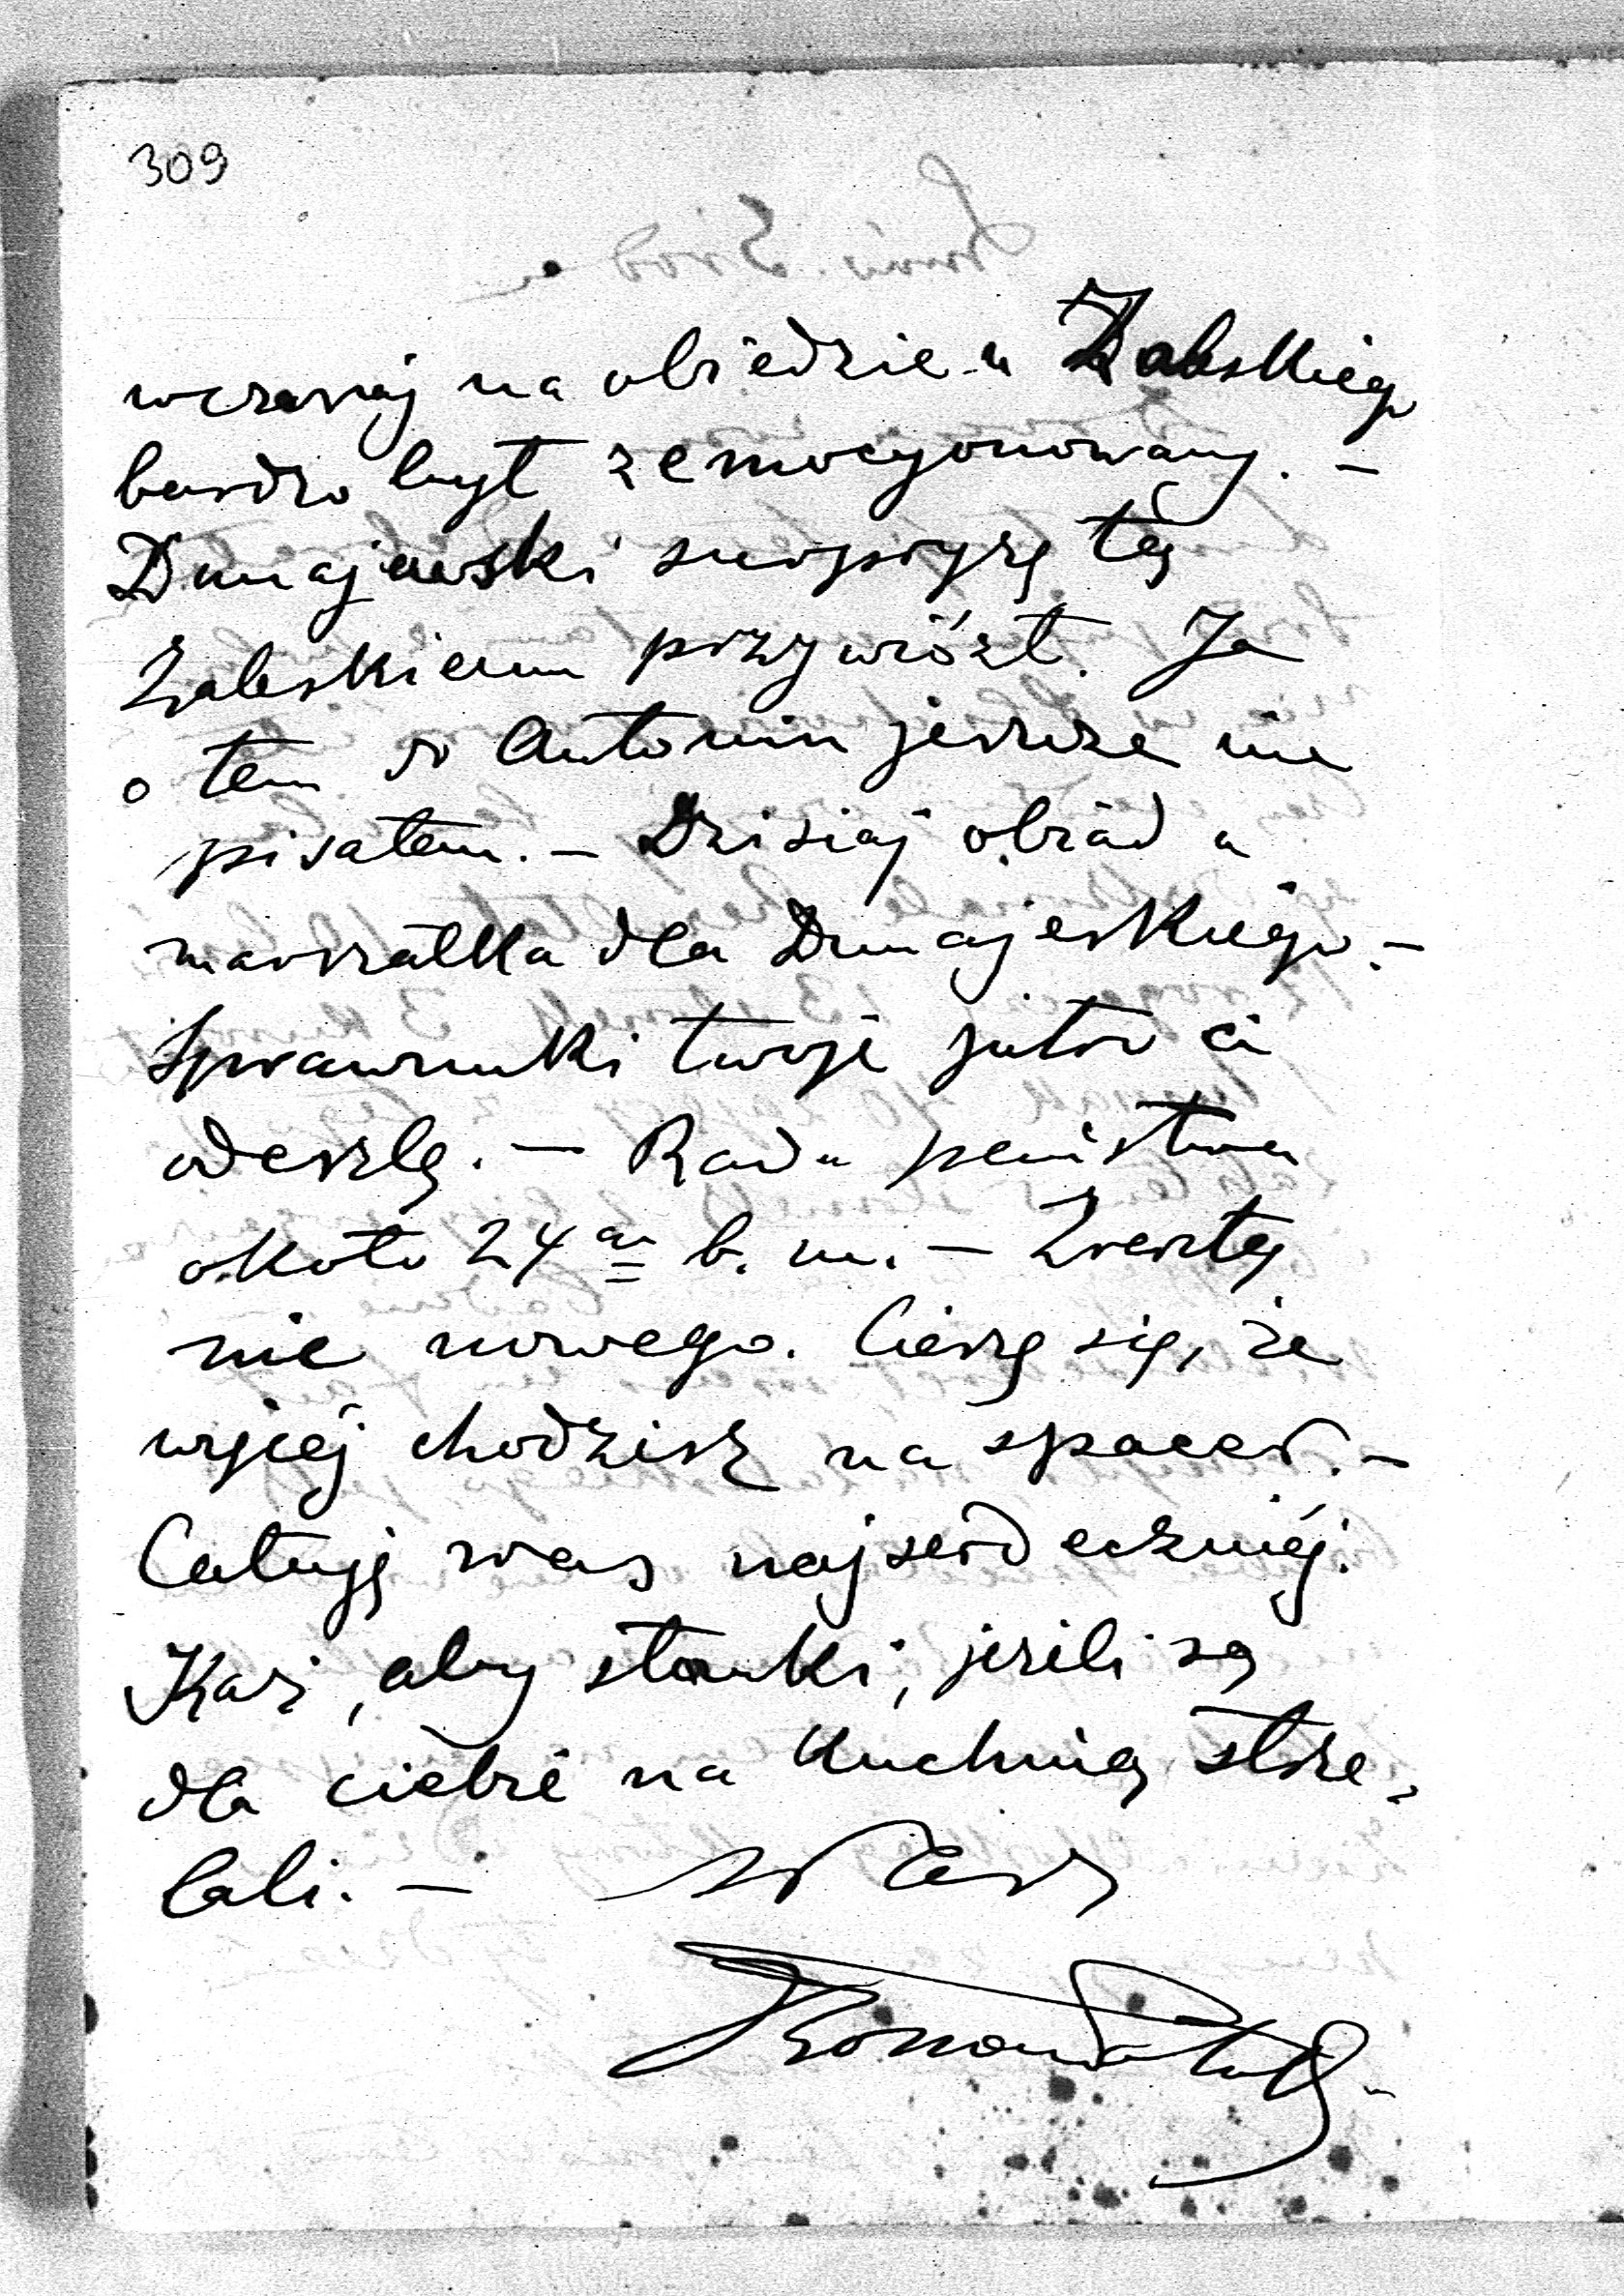 309
wczoraj na obiedzie u Zaleskiego
bardzo był zemocyonowany. –
Dunajewski surpryzę tę
Zaleskiemu przywiózł. Ja
o tem do Antonin jeszcze nie
pisałem. – Dzisiaj obiad u
marszałka dla Dunajeskiego. –
Sprawunki twoje jutro ci
odeszlę. – Rada państwa
około 24go b. m. – Zresztą
nic nowego. Cieszę się, że
więcéj chodzisz na spacer. –
Całuję was najserdeczniéj.
Każ, aby słonki, jeżeli są
dla ciebie na kuchnię strze-
lali. –